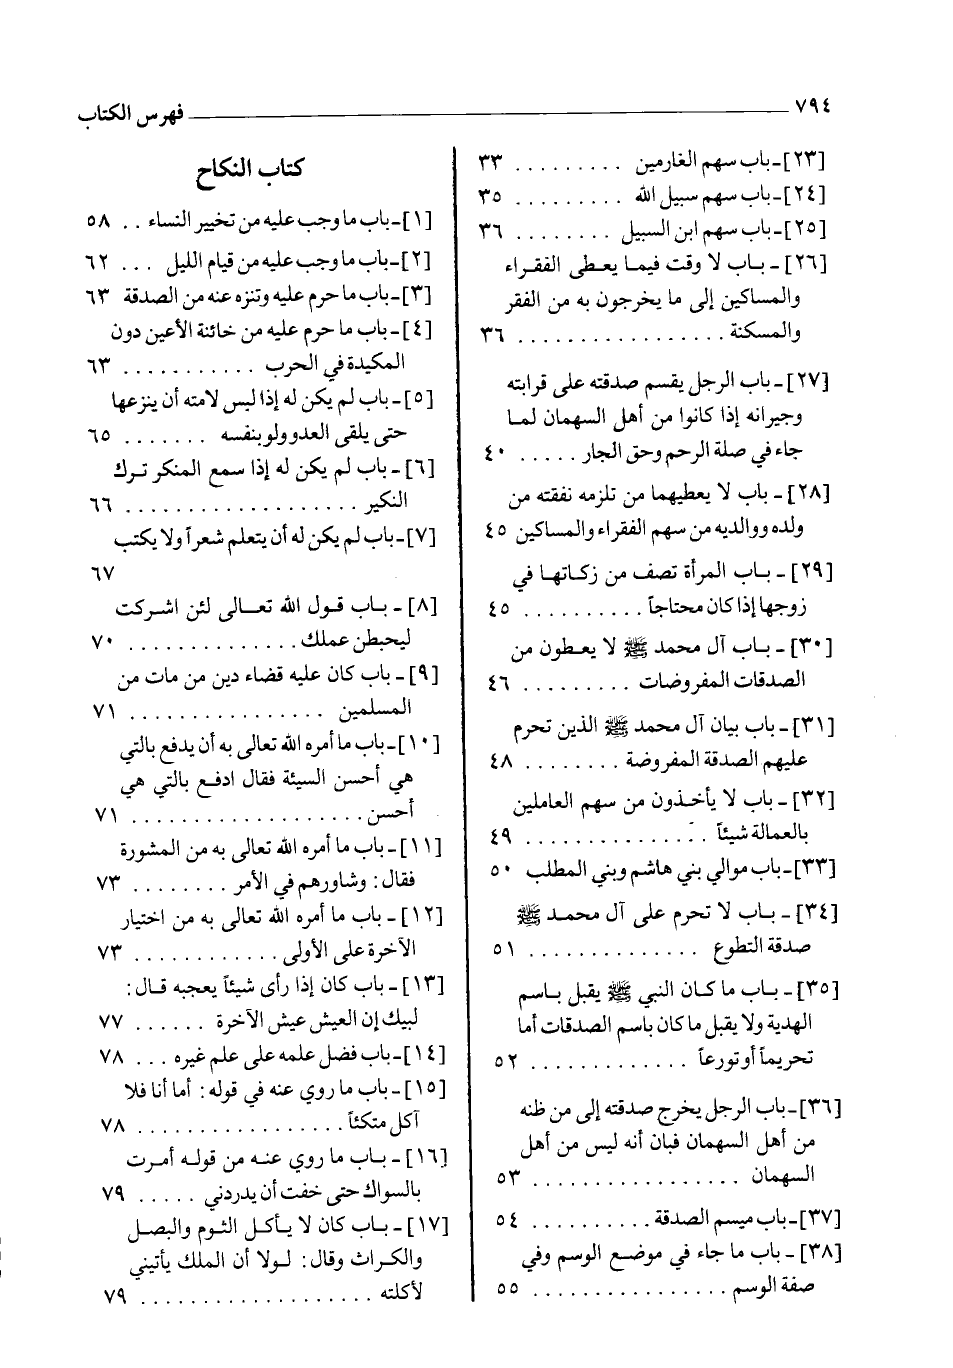 ٧٩٤ فهرس الكتاب
[٢٣] - باب سهم الغارمين . . . . . . . . . ٣٣
[٢٤] - باب سهم سبيل الله . . . . . . . . . ٣٥
[٢٥] - باب سهم ابن السبيل . . . . . . . . ٣٦
[٢٦] - باب لا وقت فيما يعطى الفقراء
والمساكين إلى ما يخرجون به من الفقر
والمسكنة . . . . . . . . . . . . . . . . . ٣٦
[٢٧] - باب الرجل يقسم صدقته على قرابته
وجيرانه إذا كانوا من أهل السهمان لما
جاء في صلة الرحم وحق الجار . . . . . ٤٠
[٢٨] - باب لا يعطيهما من تلزمه نفقته من
ولده ووالديه من سهم الفقراء والمساكين ٤٥
[٢٩] - باب المرأة تصف من زكاتها في
زوجها إذا كان محتاجاً . . . . . . . . . . ٤٥
[٣٠] - باب آل محمد ﷺ لا يعطون من
الصدقات المفروضات . . . . . . . . . ٤٦
[٣١] - باب بيان آل محمد ﷺ الذين تحرم
عليهم الصدقة المفروضة . . . . . . . . ٤٨
[٣٢] - باب لا يأخذون من سهم العاملين
بالعمالة شيئاً . . . . . . . . . . . . . . ٤٩
[٣٣] - باب موالي بني هاشم وبني المطلب ٥٠
[٣٤] - باب لا تحرم على آل محمد ﷺ
صدقة التطوع . . . . . . . . . . . . . . ٥١
[٣٥] - باب ما كان النبي ﷺ يقبل باسم
الهدية ولا يقبل ما كان باسم الصدقات أما
تحريماً أو تورعاً . . . . . . . . . . . . . ٥٢
[٣٦] - باب الرجل يخرج صدقته إلى من ظنه
من أهل السهمان فبان أنه ليس من أهل
السهمان . . . . . . . . . . . . . . . . . ٥٣
[٣٧] - باب ميسم الصدقة . . . . . . . . . . ٥٤
[٣٨] - باب ما جاء في موضع الوسم وفي
صفة الوسم . . . . . . . . . . . . . . . . ٥٥
كتاب النكاح
[١] - باب ما وجب عليه من تخيير النساء . . ٥٨
[٢] - باب ما وجب عليه من قيام الليل . . . ٦٢
[٣] - باب ما حرم عليه وتنزه عنه من الصدقة ٦٣
[٤] - باب ما حرم عليه من خائنة الأعين دون
المكيدة في الحرب . . . . . . . . . . . ٦٣
[٥] - باب لم يكن له إذا لبس لامته أن ينزعها
حتى يلقى العدو ولو بنفسه . . . . . . . ٦٥
[٦] - باب لم يكن له إذا سمع المنكر ترك
النكير . . . . . . . . . . . . . . . . . . . ٦٦
[٧] - باب لم يكن له أن يتعلم شعراً ولا يكتب
٦٧
[٨] - باب قول الله تعالى لئن اشركت
ليحبطن عملك . . . . . . . . . . . . . . ٧٠
[٩] - باب كان عليه قضاء دين من مات من
المسلمين . . . . . . . . . . . . . . . . ٧١
[١٠] - باب ما أمره الله تعالى به أن يدفع بالتي
هي أحسن السيئة فقال ادفع بالتي هي
أحسن . . . . . . . . . . . . . . . . . . . ٧١
[١١] - باب ما أمره الله تعالى به من المشورة
فقال: وشاورهم في الأمر . . . . . . . . ٧٣
[١٢] - باب ما أمره الله تعالى به من اختيار
الآخرة على الأولى . . . . . . . . . . . . ٧٣
[١٣] - باب كان إذا رأى شيئاً يعجبه قال:
لبيك إن العيش عيش الآخرة . . . . . . ٧٧
[١٤] - باب فضل علمه على علم غيره . . . ٧٨
[١٥] - باب ما روي عنه في قوله: أما أنا فلا
آكل متكئاً . . . . . . . . . . . . . . . . . ٧٨
[١٦] - باب ما روي عنه من قوله أمرت
بالسواك حتى خفت أن يدردني . . . . . ٧٩
[١٧] - باب كان لا يأكل الثوم والبصل
والكراث وقال: لولا أن الملك يأتيني
لأكلته . . . . . . . . . . . . . . . . . . . ٧٩